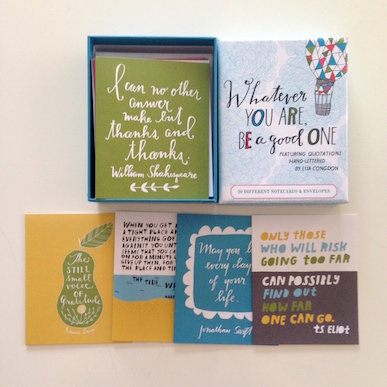 I can no other
answer
make but
thanks, and
thanks.
William Shakespeare
Whatever
YOU ARE,
BE a good ONE
FEATURING QUOTATIONS
HAND-LETTERED
BY LISA CONGDON
20 DIFFERENT NOTECARDS & ENVELOPES
The
STILL
small
voice of
Gratitude
WHEN YOU GET
A TIGHT PLACE
EVERYTHING GOE
AGAINST YOU UNT
SEEMS THAT YOU CAN
ON FOR A MINUTE
GIVE UP THEN, FOR
THE PLACE AND TIME
THE TIDE
May you l
every day
of your
life.
Jonathan Swift
ONLY THOSE
WHO WILL RISK
GOING TOO FAR
CAN POSSIBLY
FIND OUT
HOW FAR
ONE CAN GO.
TS ELIOT